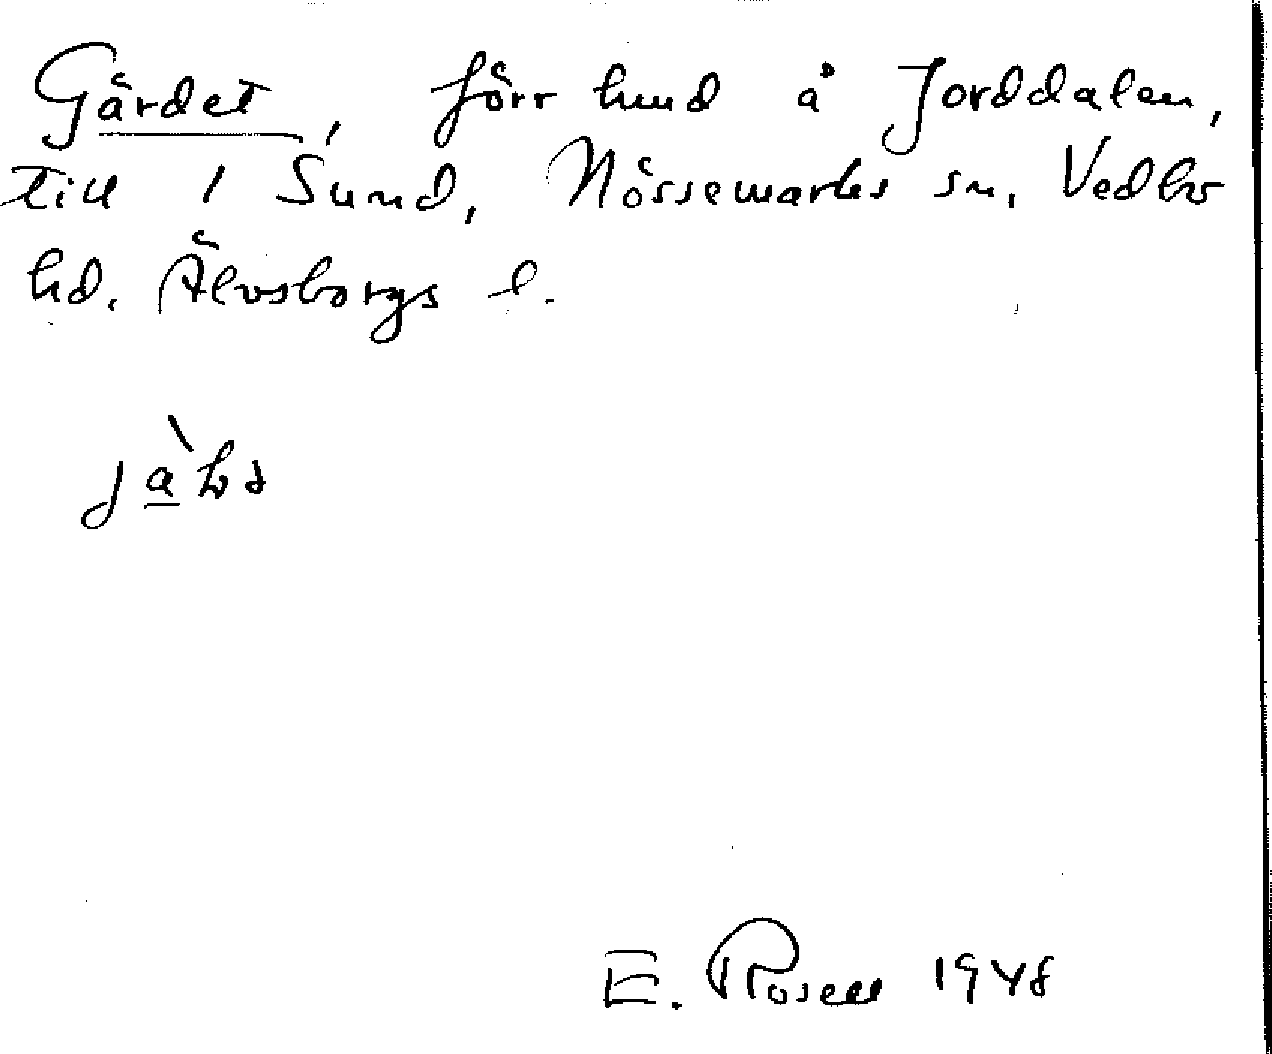 Gärdet, förr hmd å Jorddalen,
till 1 Sund, Nössemarks sn, Vedbo
hd. Älvsborgs l.
E. Rosell 1948